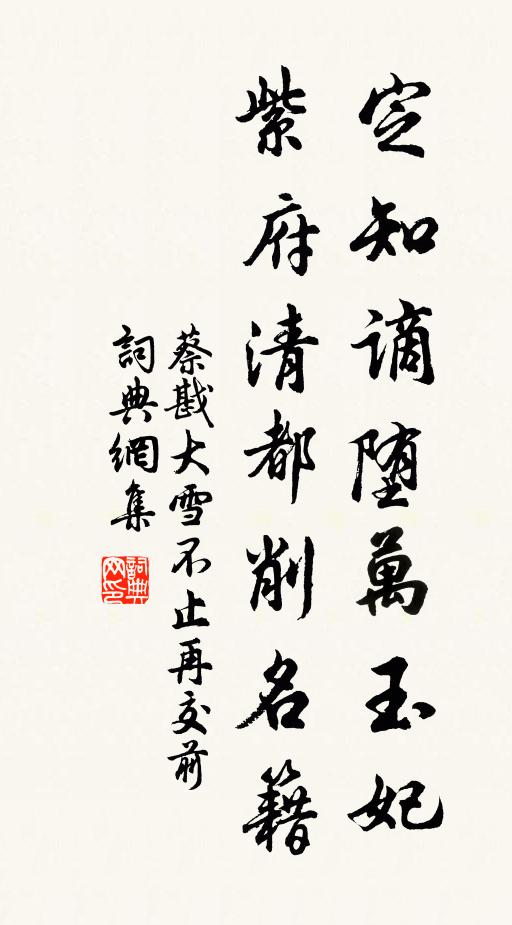 定知謫墮萬玉妃
紫府清都削名籍
蔡戡大雪不止再交前
詞典網集
詞典网印